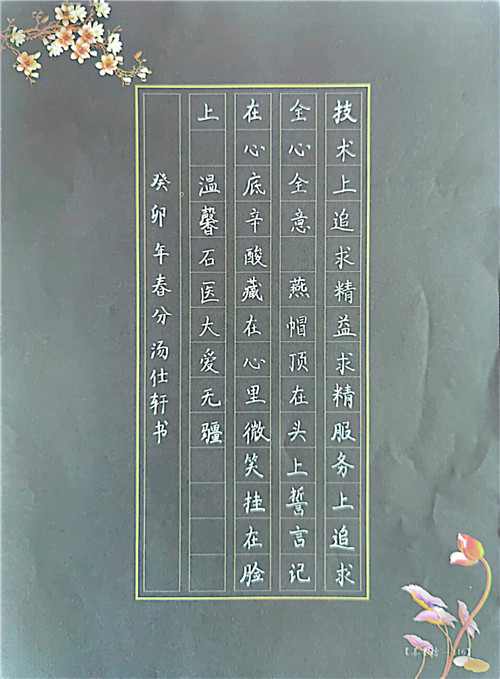 技术上追求精益求精服务上追求
全心全意 燕帽顶在头上誓言记
在心底辛酸藏在心里微笑挂在脸
上 温馨石医大爱无疆
癸卯年春分汤仕轩书